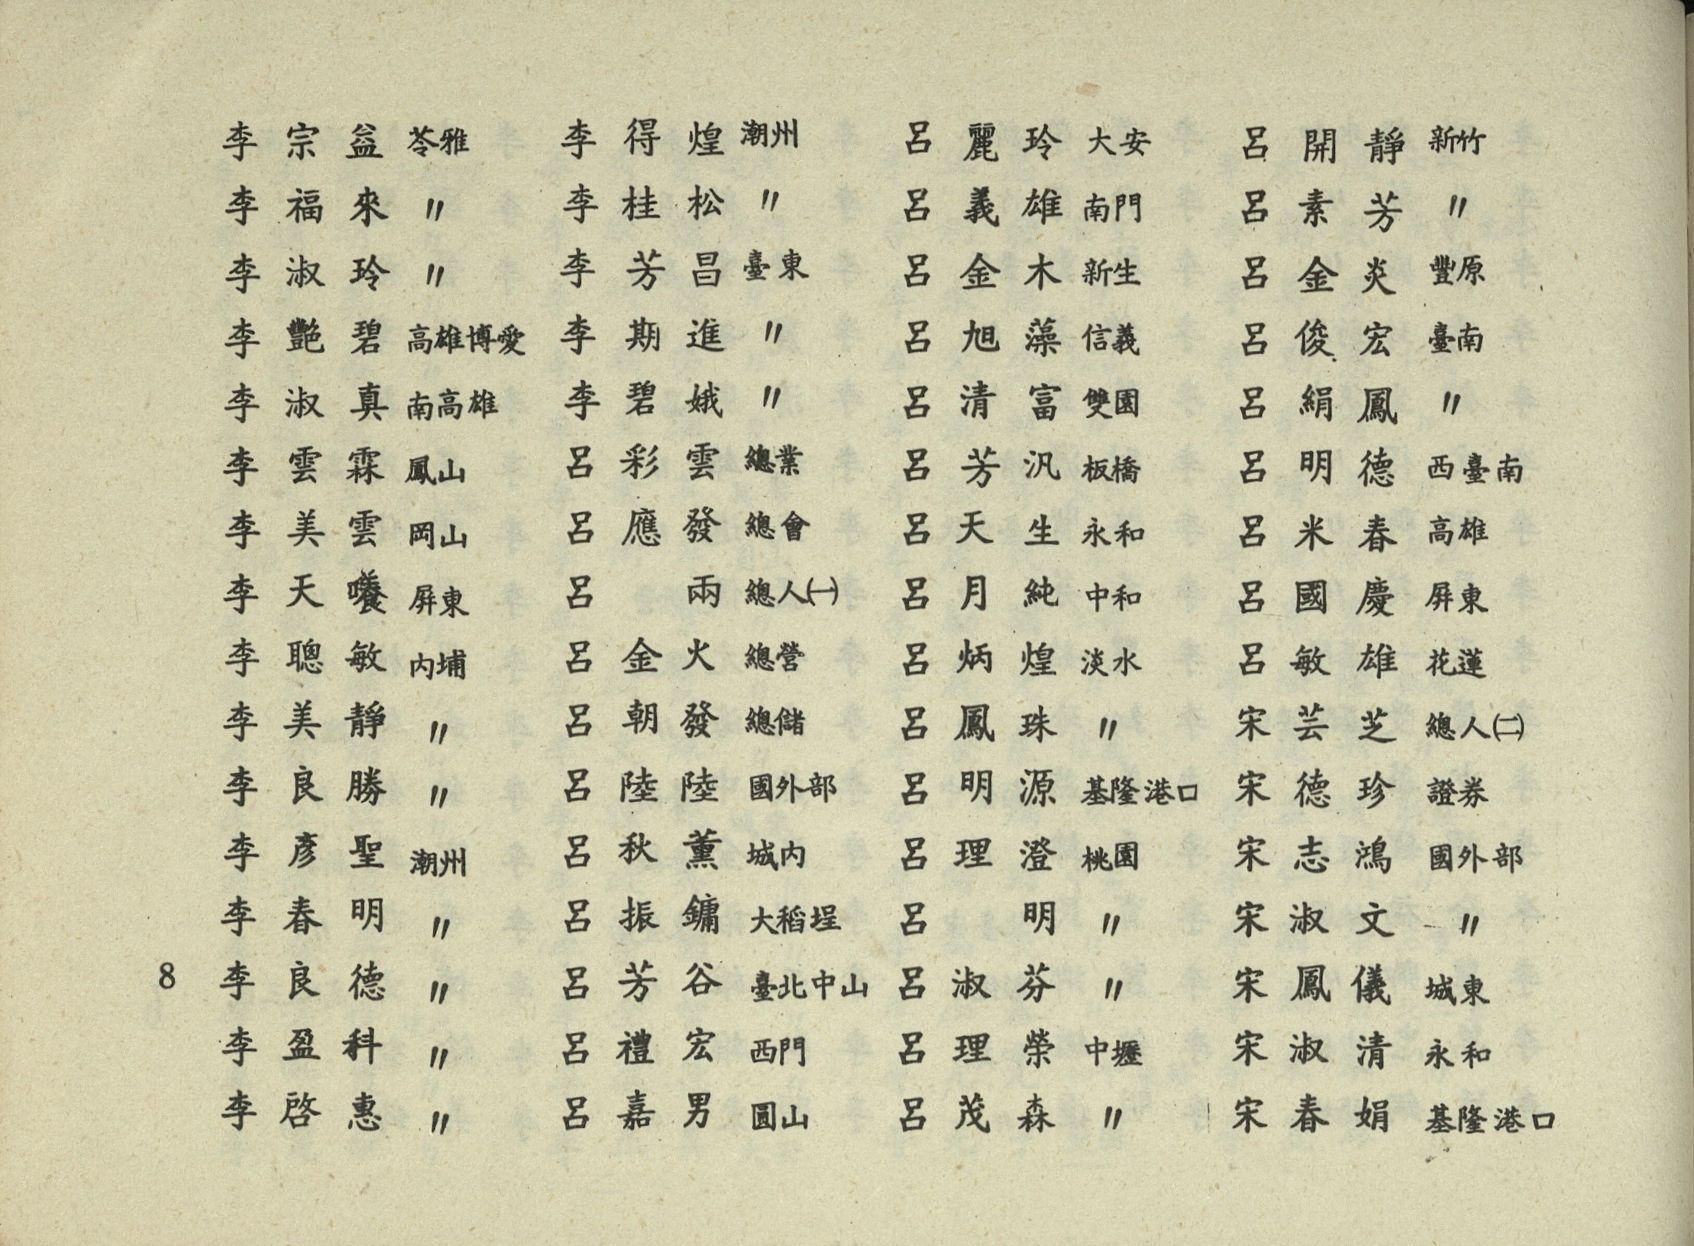 李宗益 苓雅
李福來 〃
李淑玲 〃
李艷碧 高雄博愛
李淑真 南高雄
李雲霖 鳳山
李美雲 岡山
李天 屏東
李聰敏 內埔
李美靜 〃
李良勝 〃
李彥聖 潮州
李春明 〃
李良德 〃
李盈科 〃
李啓惠 〃
李得煌 潮州
李桂松 〃
李芳昌 臺東
李期進 〃
李碧娥 〃
呂彩雲 總業
呂應發 總會
呂 兩 總人㈠
呂金火 總營
呂朝發 總儲
呂陸陸 國外部
呂秋薰 城內
呂振鏞 大稻埕
呂芳谷 臺北中山
呂禮宏 西門
呂嘉男 圓山
呂麗玲 大安
呂義雄 南門
呂金木 新生
呂旭藻 信義
呂清富 雙園
呂芳汎 板橋
呂天生 永和
呂月純 中和
呂炳煌 淡水
呂鳳珠 〃
呂明源 基隆港口
呂理澄 桃園
呂 明 〃
呂淑芬 〃
呂理榮 中壢
呂茂森 〃
呂開靜 新竹
呂素芳 〃
呂金炎 豐原
呂俊宏 臺南
呂絹鳳 〃
呂明德 西臺南
呂米春 高雄
呂國慶 屏東
呂敏雄 花蓮
宋芸芝 總人㈡
宋德珍 證券
宋志鴻 國外部
宋淑文 〃
宋鳳儀 城東
宋淑清 永和
宋春娟 基隆港口
8